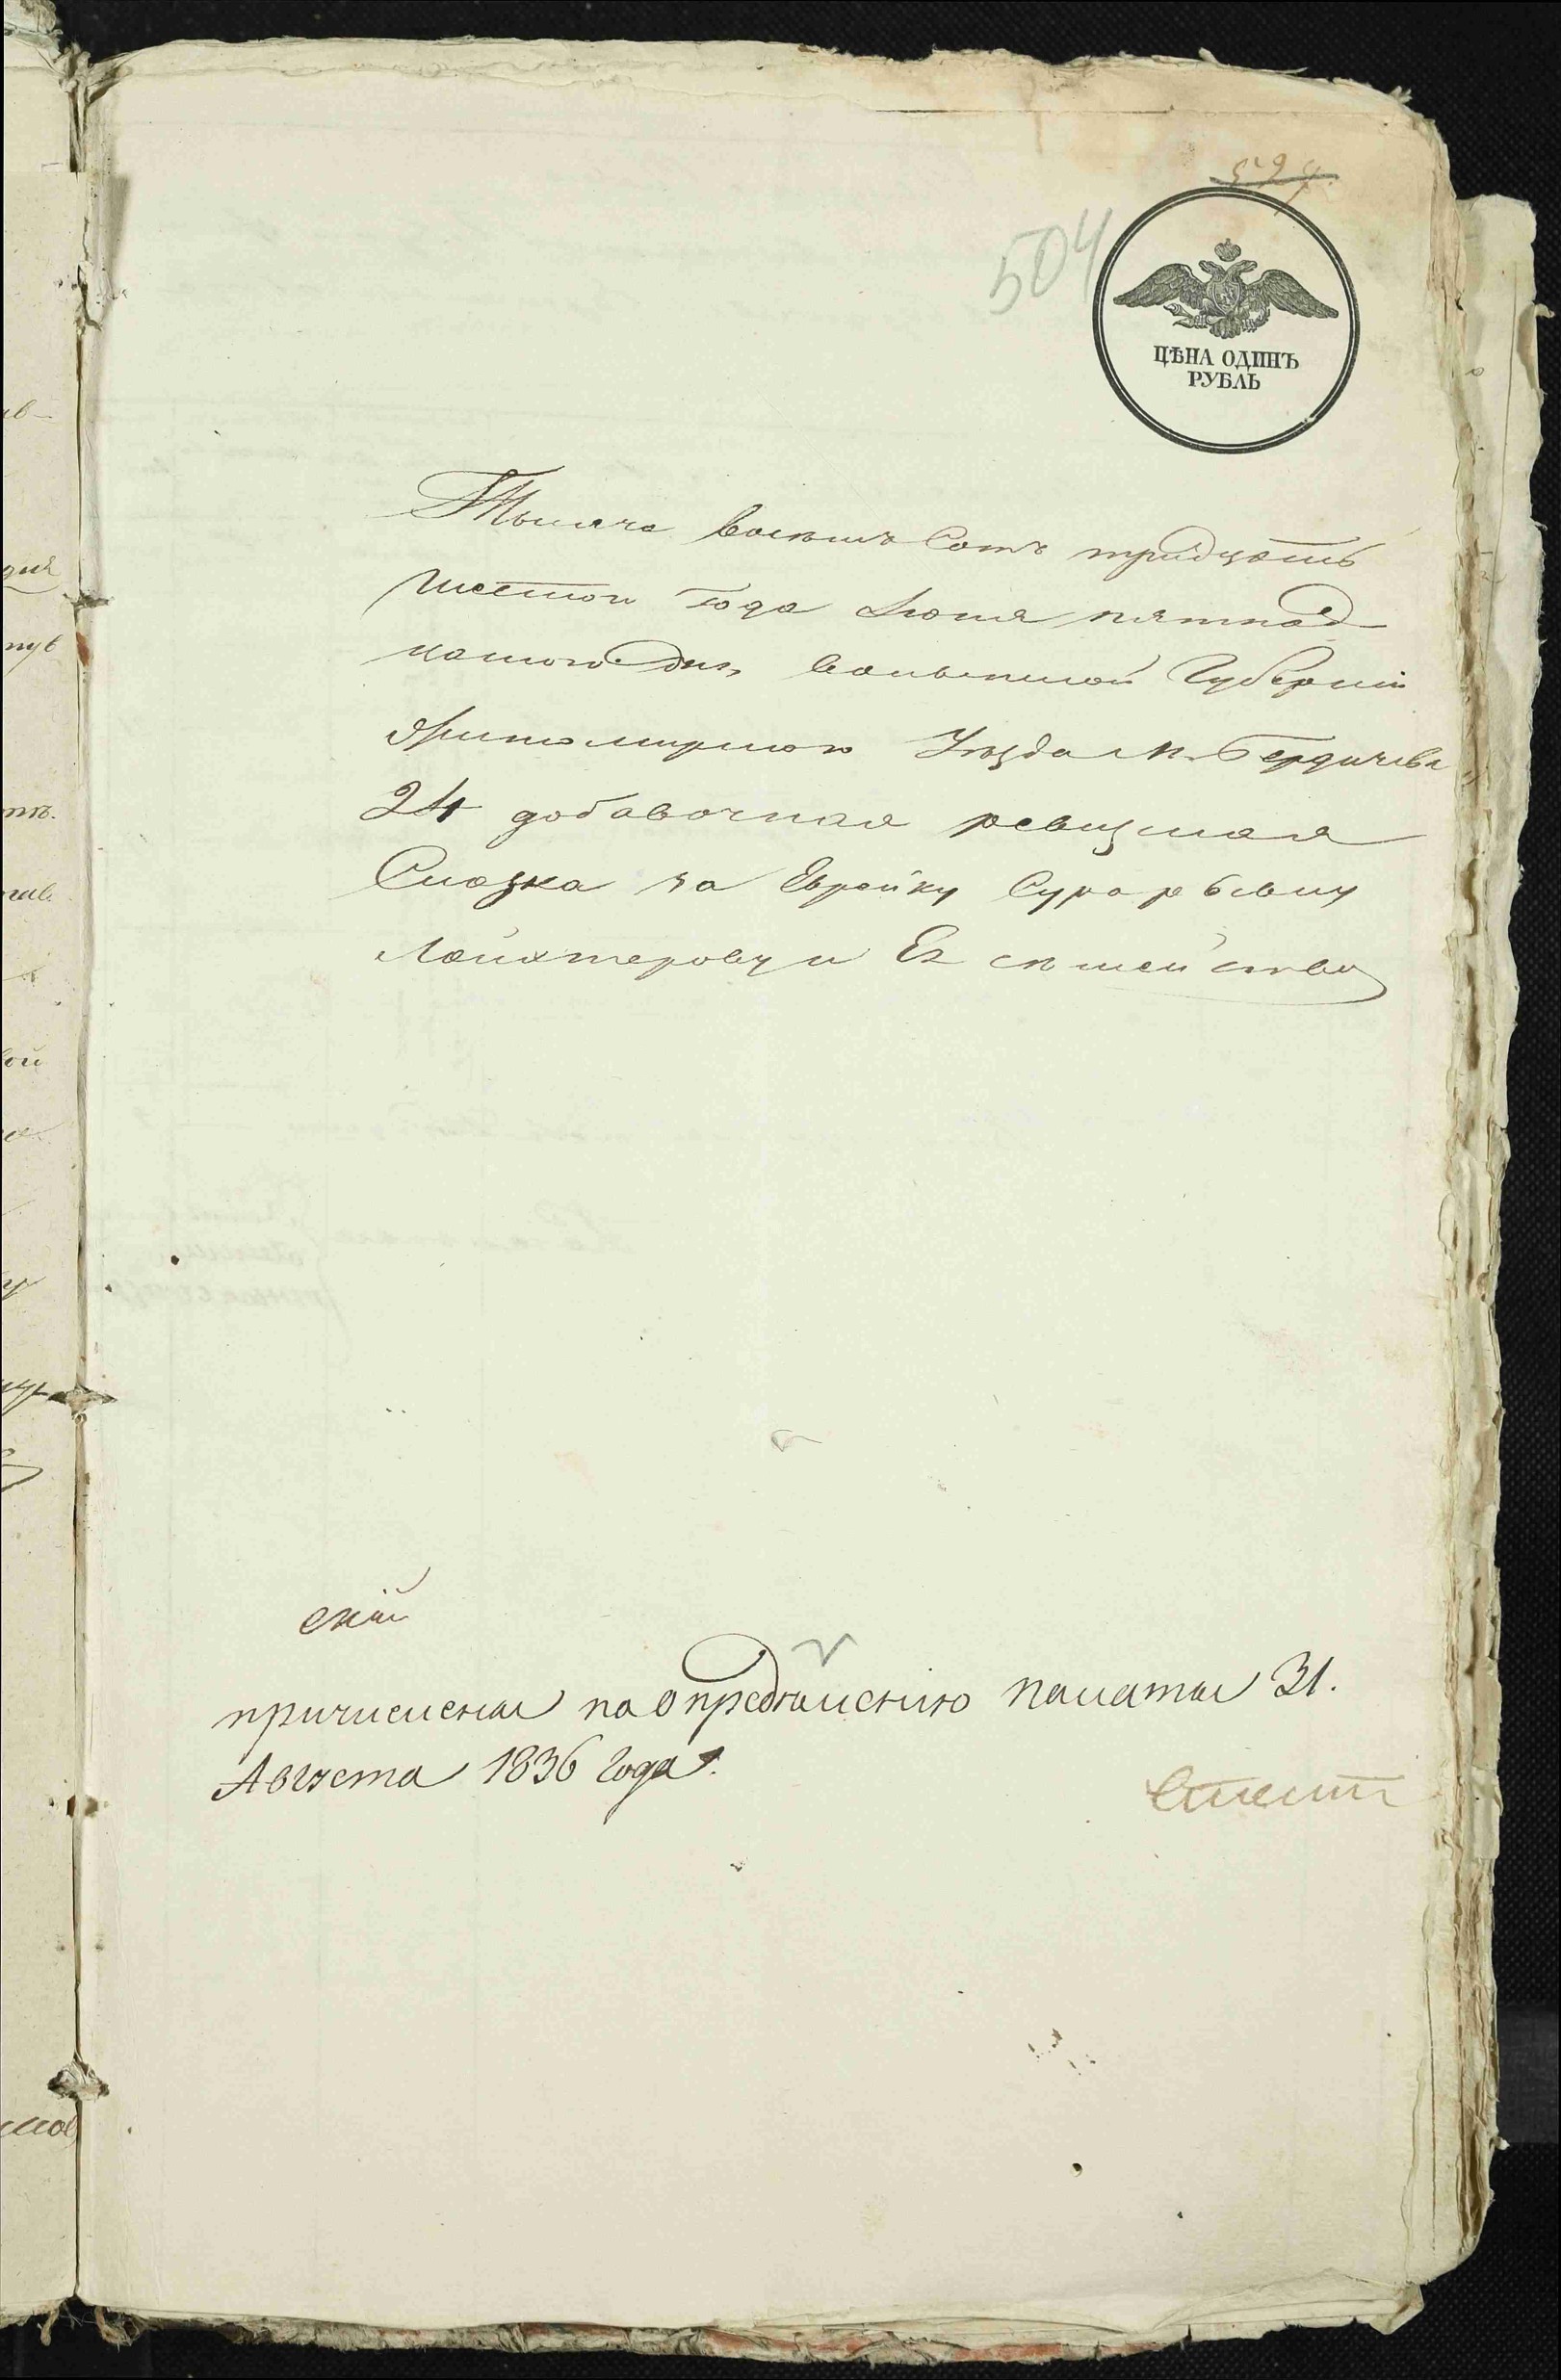 524
504
ЦѢНА ОДИНЪ
РУБЛЬ
Тысяча восемь Сотъ тридцать
шестои Года Июня пятнад-
цатого дня, волынской Губерніи
Житомирского Уезда М. Бердичева
24 добавочная ревизская
Сказка за Еврейку Сура
Лайхтерову и Ее семейство
скій
причислены по опредѣлению палаты 31.
Августа 1836 года.